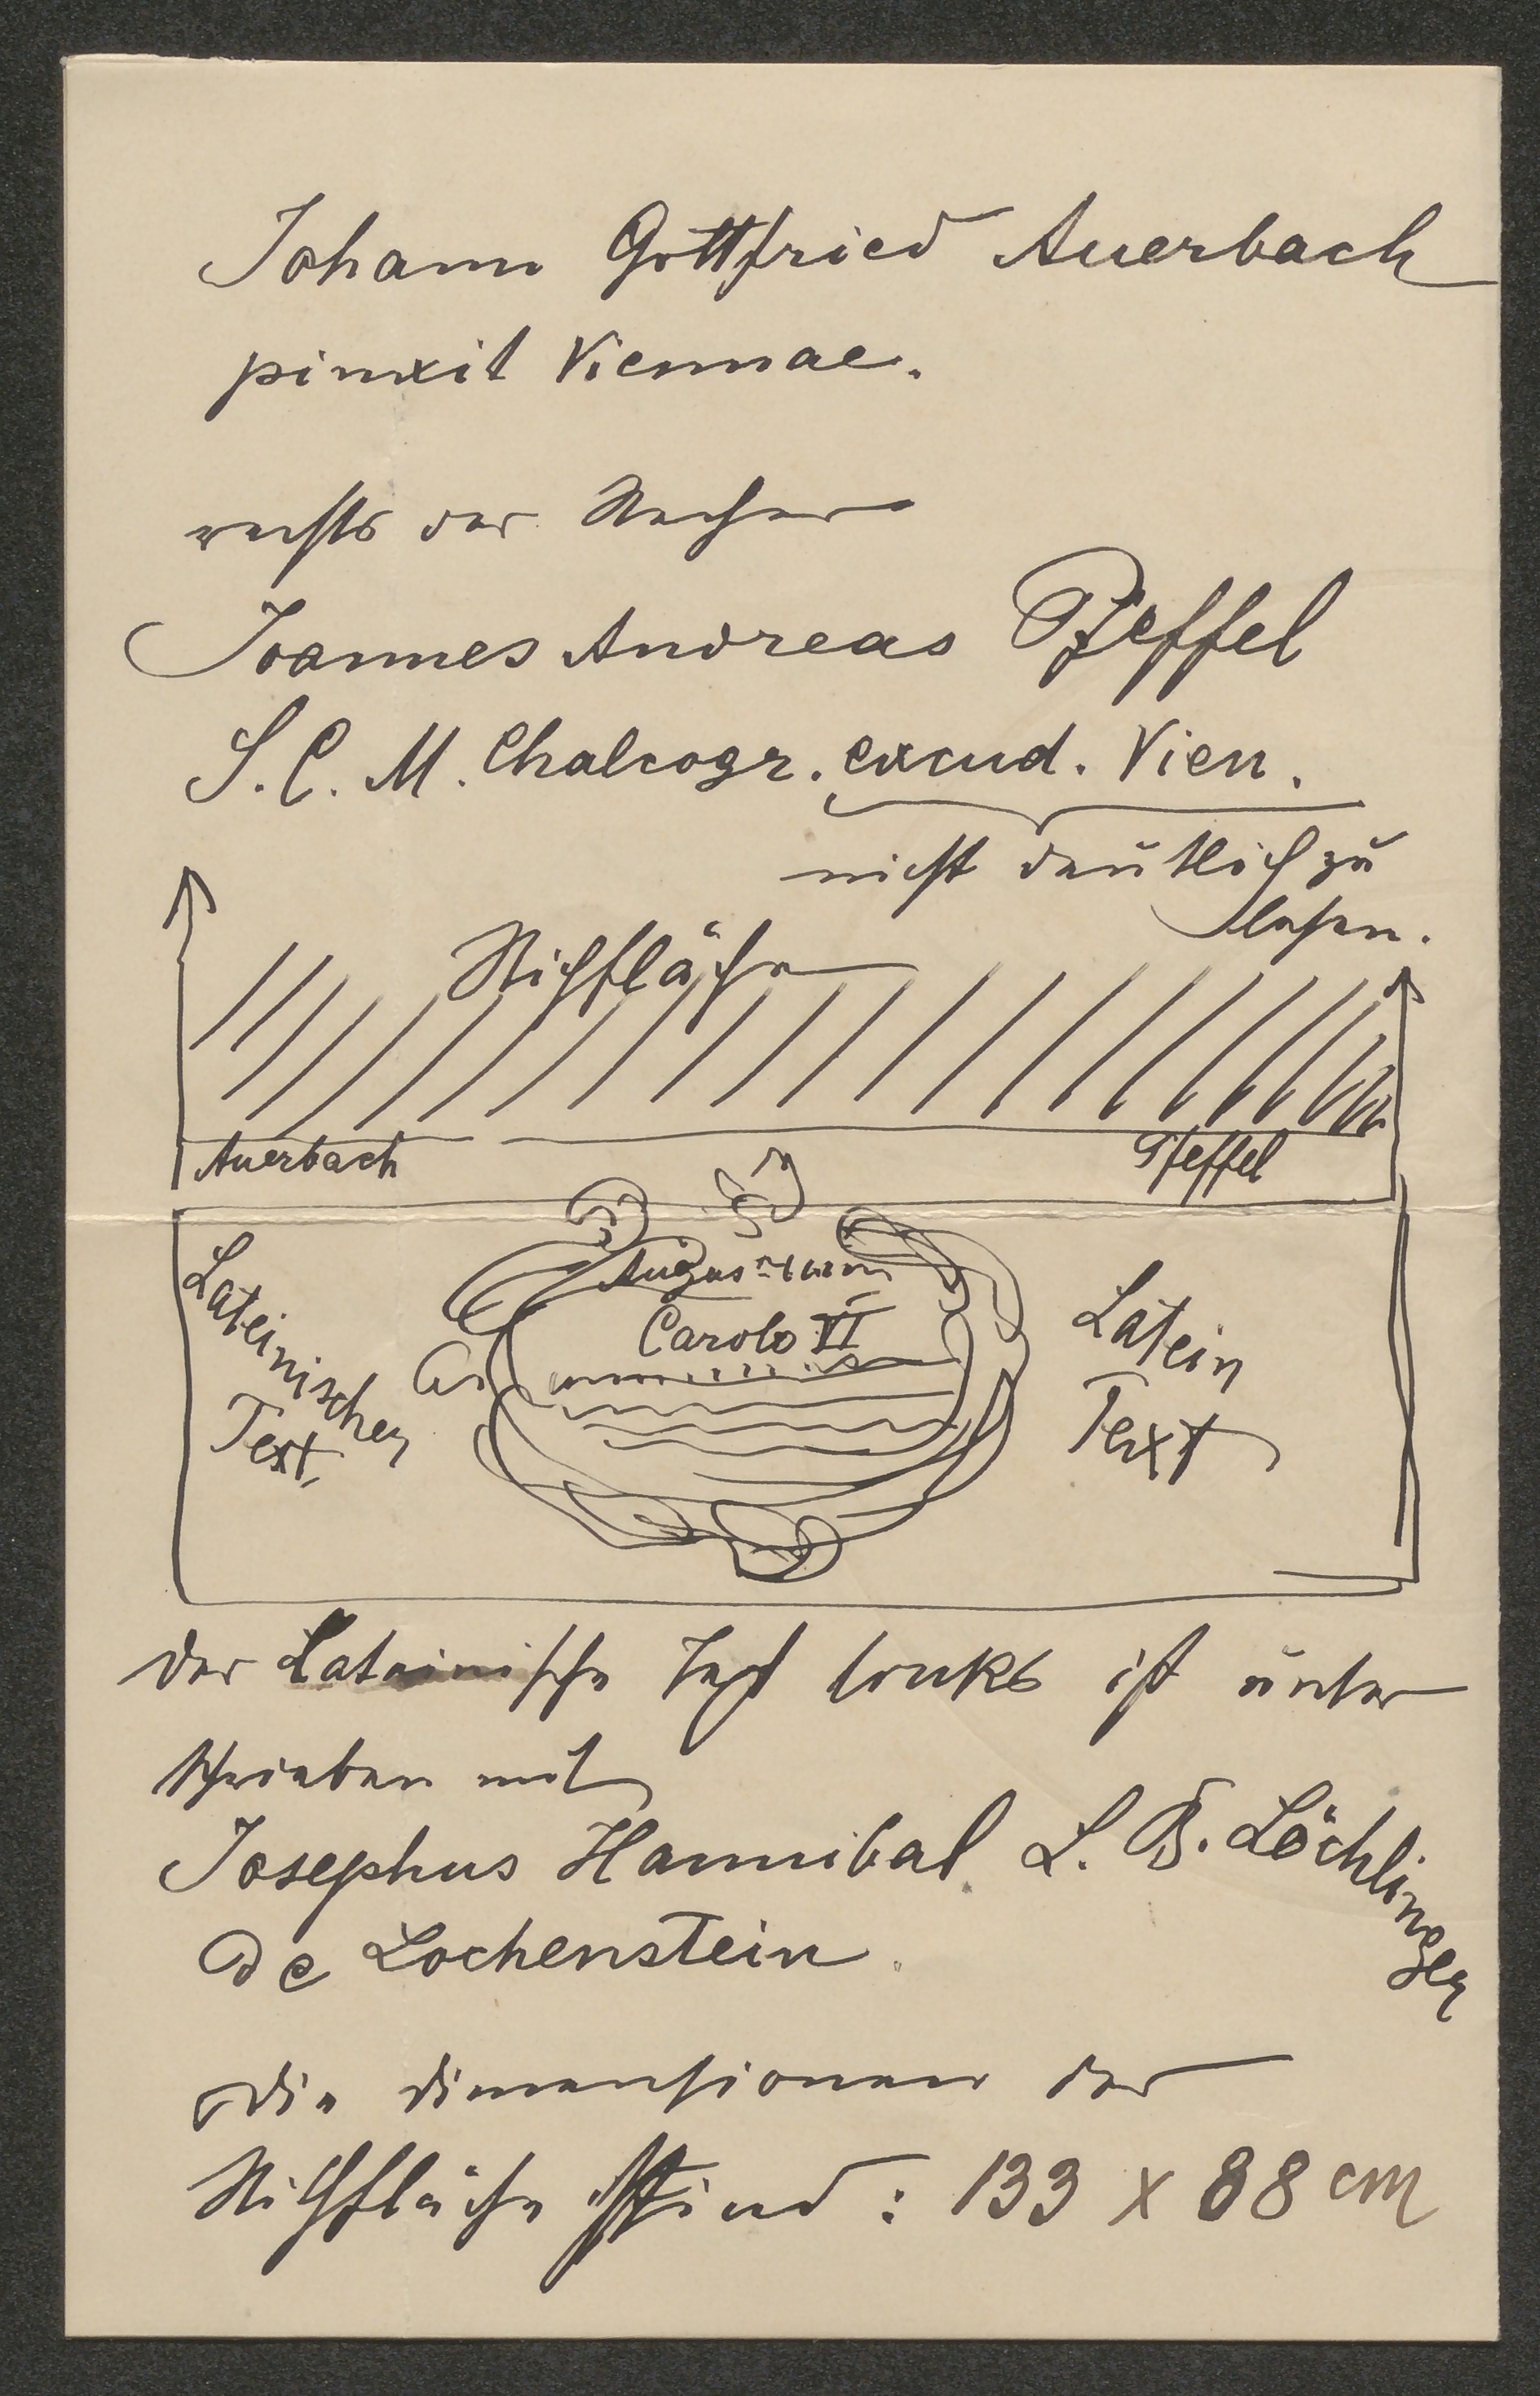 Johann Gottfried Auerbach
pinxit Viennae.
rechts der Stecher
Joannes Andreas Pfeffel
S. C. M. Chalcogr. excud. Vien.
nicht deutlich zu
lesen.
Stichfläche
Auerbach
Pfeffel
Lateinischer
Text
Carolo VI
Latein
Text
der Lateinische Text links ist unter
schrieben mit
Josephus Hannibal L. B. Löchlinger
De Lochenstein
Die Dimensionen der
Stichfläche sind: 133 x 88 cm